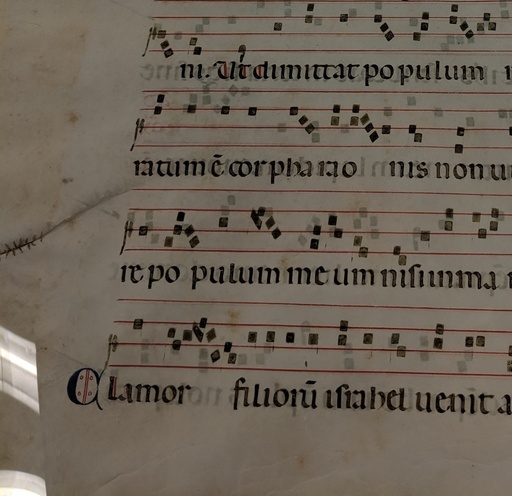 ni. Ut dimittat populum
ratum ē cor pharao nis non u
re po pulum meum nisi in ma
Clamor filiorū israhel uenit a